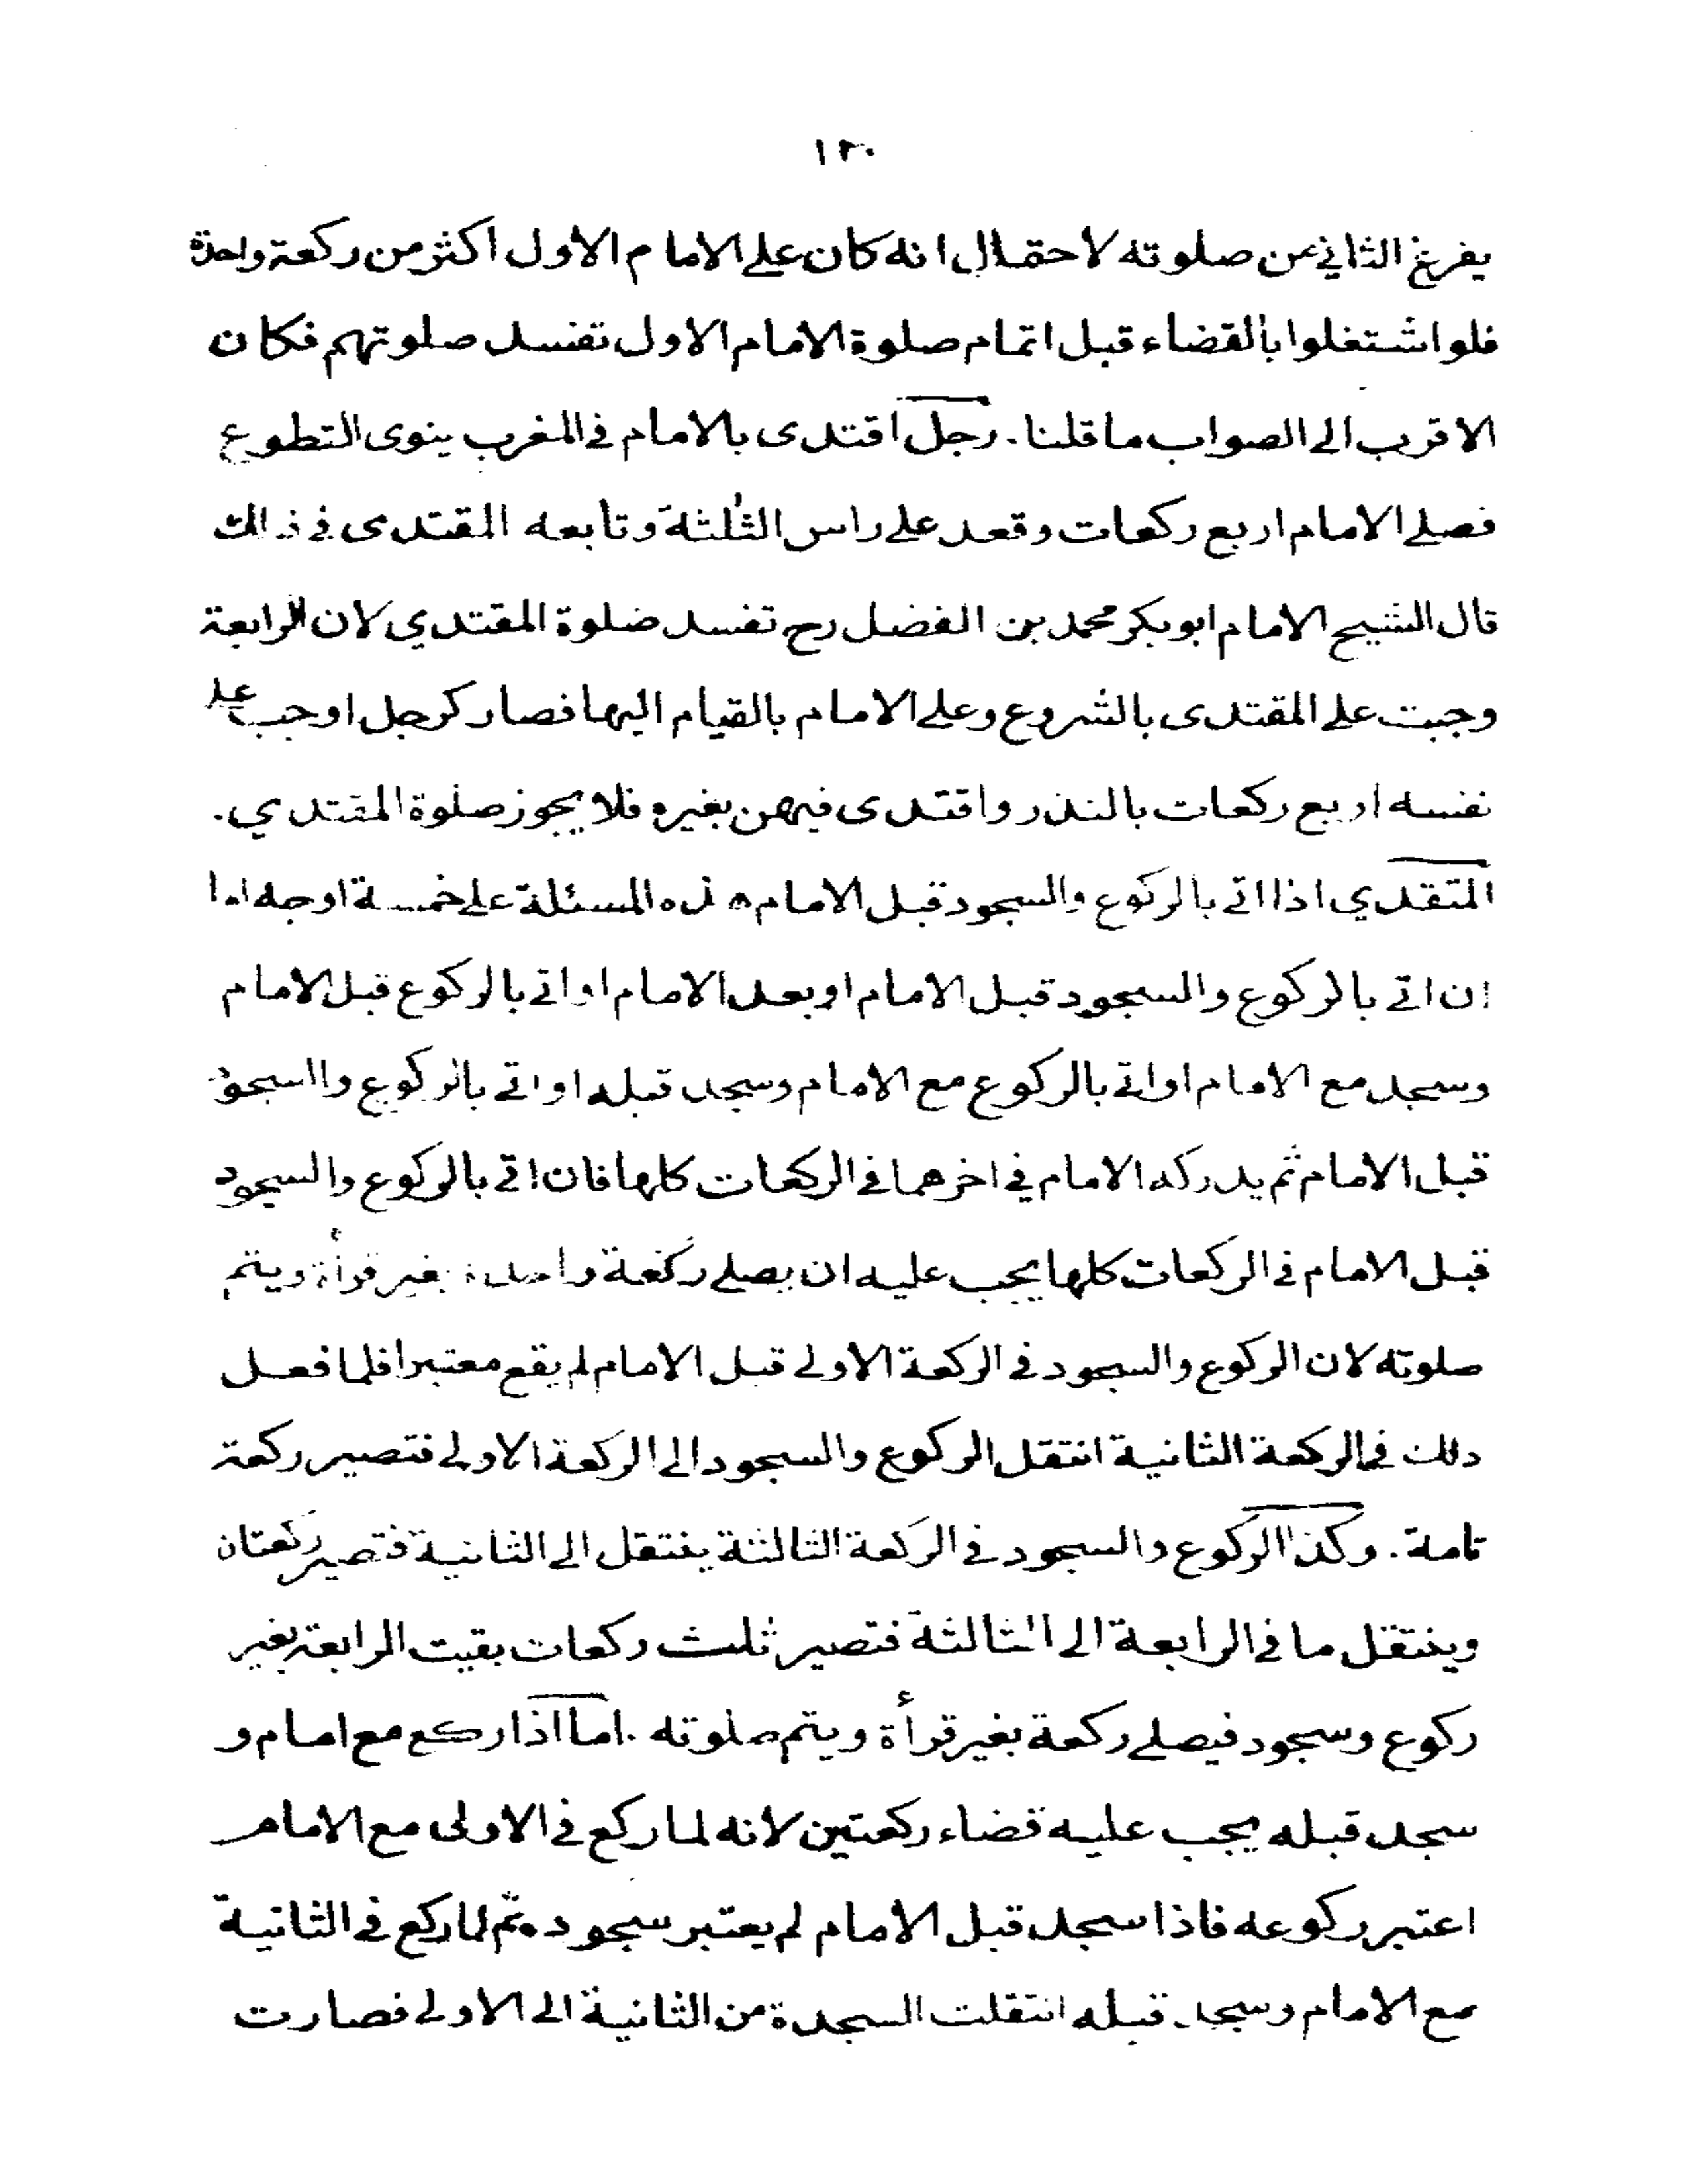 ١٢٠
يفرغ الثاني عن صلوته لاحتمال انه كان على الامام الاول اكثر من ركعة واحدة
فلو اشتغلوا بالقضاء قبل اتمام صلوة الامام الاول تفسد صلوتهم فكان
الاقرب الى الصواب ما قلنا . رجل اقتدى بالامام فى المغرب ينوى التطوع
فصلى الامام اربع ركعات وقعد على راس الثلثة وتابعه المقتدى فى ذالك
قال الشيخ الامام ابو بكر محمد بن الفضل رح تفسد صلوة المقتدي لان الرابعة
وجبت على المقتدى بالشروع وعلى الامام بالقيام اليها فصار كرجل اوجب على
نفسه اربع ركعات بالنذر واقتدى فيهن بغيره فلا يجوز صلوة المقتدي .
المتقدي اذا اتى بالركوع والسجود قبل الامام هذه المسئلة على خمسة اوجه اما
ان اتى بالركوع والسجود قبل الامام او بعد الامام او اتى بالركوع قبل الامام
وسجد مع الامام او اتى بالركوع مع الامام وسجد قبله او اتى بالركوع والسجود
قبل الامام ثم يدركه الامام في اخرهما فى الركعات كلها فان اتى بالركوع والسجود
قبل الامام فى الركعات كلها يجب عليه ان يصلى ركعة واحدة بغير قرأة ويتم
صلوته لان الركوع والسجود فى الركعة الاولى قبل الامام لم يقع معتبرا فلما فعل
دلك فى الركعة الثانية انتقل الركوع والسجود الى الركعة الاولى فتصير ركعة
تامة . وكذا الركوع والسجود فى الركعة الثالثة ينتقل الى الثانية فتصير ركعتان
وينتقل ما فى الرابعة الى الثالثة فتصير ثلث ركعات بقيت الرابعة بغير
ركوع وسجود فيصلى ركعة بغير قرأة ويتم صلوته . اما اذا ركع مع امام و
سجد قبله يجب عليه قضاء ركعتين لانه لما ركع فى الاولى مع الامام
اعتبر ركوعه فاذا سجد قبل الامام لم يعتبر سجوده ثم لما ركع فى الثانية
مع الامام وسجد قبله انتقلت السجدة من الثانية الى الاولى فصارت